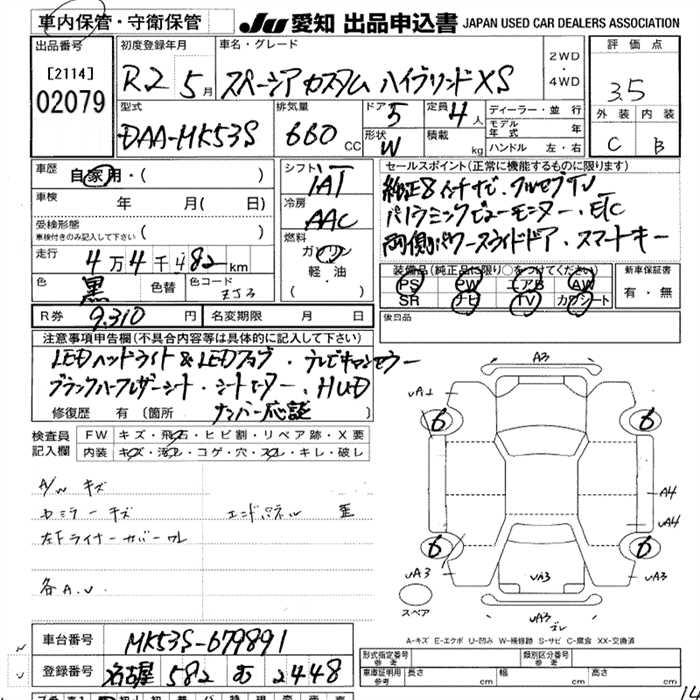 車内保管・守衛保管
JU 愛知 出品申込書 JAPAN USED CAR DEALERS ASSOCIATION
出品番号
[2114]
02079
初度登録年月
R2 5月
車名・グレード
スペーシア カスタム ハイブリッドXS
2WD
・
4WD
評価点
3.5
外装 内装
C B
型式
DAA-MK53S
排気量
660 CC
ドア 5
形状 W
定員 4人
積載 kg
ディーラー・並行
モデル年式 年
ハンドル 左・右
車歴
自家用・( )
車検 年 月( 日)
受検形態
車検付きのみ記入して下さい ( )
走行
4万4千482km
色 黒 色替 色コード ZJ3
R券 9,310円 名変期限 月 日
シフト
IAT
冷房
AAC
燃料
ガソリン
軽・油
・( )
セールスポイント(正常に機能するものに限ります)
純正8インチナビ・フルセグTV
パノラミックビューモニター・ETC
両側パワースライドドア・スマートキー
装備品(純正品に限り○をつけてください)
PS PW エアB AW
SR ナビ TV カワシート
新車保証書
有・無
後日品
注意事項申告欄(不具合内容等は具体的に記入して下さい)
LEDヘッドライト&LEDフォグ・テレビキャンセラー
ブラックハーフレザーシート・シートヒーター・HUD
ナンバー応談
修復歴 有(箇所 )
検査員記入欄
FW キズ・飛石・ヒビ割・リペア跡・X要
内装 キズ・汚レ・コゲ・穴・スレ・キレ・破レ
A/W キズ
セミラーキズ エンドパネル 歪
左下ライナーカバーワレ
各A.U
A3
UA1
6
6
A4
UA4
6
6
UA3
UA3
UA3
UA3
ズレ
スペア
A-キズ E-エクボ U-凹み W-補修跡 S-サビ C-腐食 XX-交換済
車台番号 MK53S-679891
登録番号 名古屋 582 む 2448
形式指定番号
参考
類別区分番号
参考
車庫証明用
参考
長さ 幅 高さ